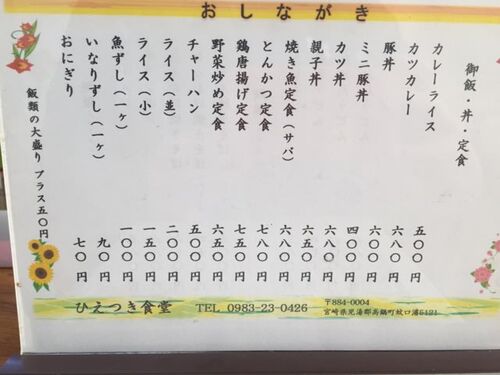 おしながき
御飯・丼・定食
カレーライス 五〇〇円
カツカレー 六八〇円
豚丼 六五〇円
ミニ豚丼 四〇〇円
カツ丼 六八〇円
親子丼 六五〇円
焼き魚定食(サバ) 六八〇円
とんかつ定食 七八〇円
鶏唐揚げ定食 七五〇円
野菜炒め定食 六五〇円
チャーハン 五〇〇円
ライス(並) 二〇〇円
ライス(小) 一五〇円
魚ずし(一ヶ) 一〇〇円
いなりずし(一ヶ) 九〇円
おにぎり 七〇円
飯類の大盛り プラス五〇円
ひえつき食堂 TEL 0983-23-0426
〒884-0004
宮崎県児湯郡高鍋町蚊口浦5121